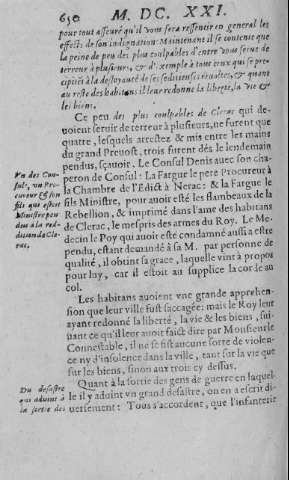 650 M. DC. XXI.
pour tout asseuré qu'il vous fera ressentir en general les
effects de son indignation: Maintenant il se contente que
la peine de peu des plus coulpables d'entre vous serue de
terreur à plusieurs, & d'exemple à tous ceux qui se pre-
cipitét à la desloyauté de ses seditieuses reuoltes, & quant
au reste des habitans il leur redonne la liberté, la vie &
les biens.
Ce peu des plus coulpables de Clerac qui de-
uoient seruir de terreur à plusieurs, ne furent que
quatre, lesquels arrestez & mis entre les mains
du grand Preuost, trois furent dés le lendemain
pendus, sçauoir. Le Consul Denis auec son cha-
peron de Consul: La Fargue le pere Procureur à
la Chambre de l'Edict à Nerac: & la Fargue le
fils Ministre, pour auoir esté les flambeaux de la
Rebellion, & imprimé dans l'ame des habitans
de Clerac, le mespris des armes du Roy. Le Me-
decin le Poy qui auoit esté condamné aussi a estre
pendu, estant demandé à sa M. par personne de
qualité, il obtint sa grace, laquelle vint à propos
pour luy, car il estoit au supplice la corde au
col.
Vn des Con-
suls, vn Pro-
cureur & son
fils qui estoit
Ministre pen-
dus à la red-
dition de Cle-
rac.
Les habitans auoient vne grande apprehen-
sion que leur ville fust saccagee: mais le Roy leur
ayant redonné la liberté, la vie & les biens, sui-
uant ce qu'il leur auoit faict dire par Monsieur le
Connestable, il ne se fist aucune sorte de violen-
ce ny d'insolence dans la ville, tant sur la vie que
sur les biens, sinon aux trois cy dessus.
Quant à la sortie des gens de guerre en laquel-
le il y aduint vn grand desastre, on en a escrit di-
uersement: Tous s'accordent, que l'infanterie
Du desastre
qui aduint à
la sortie des